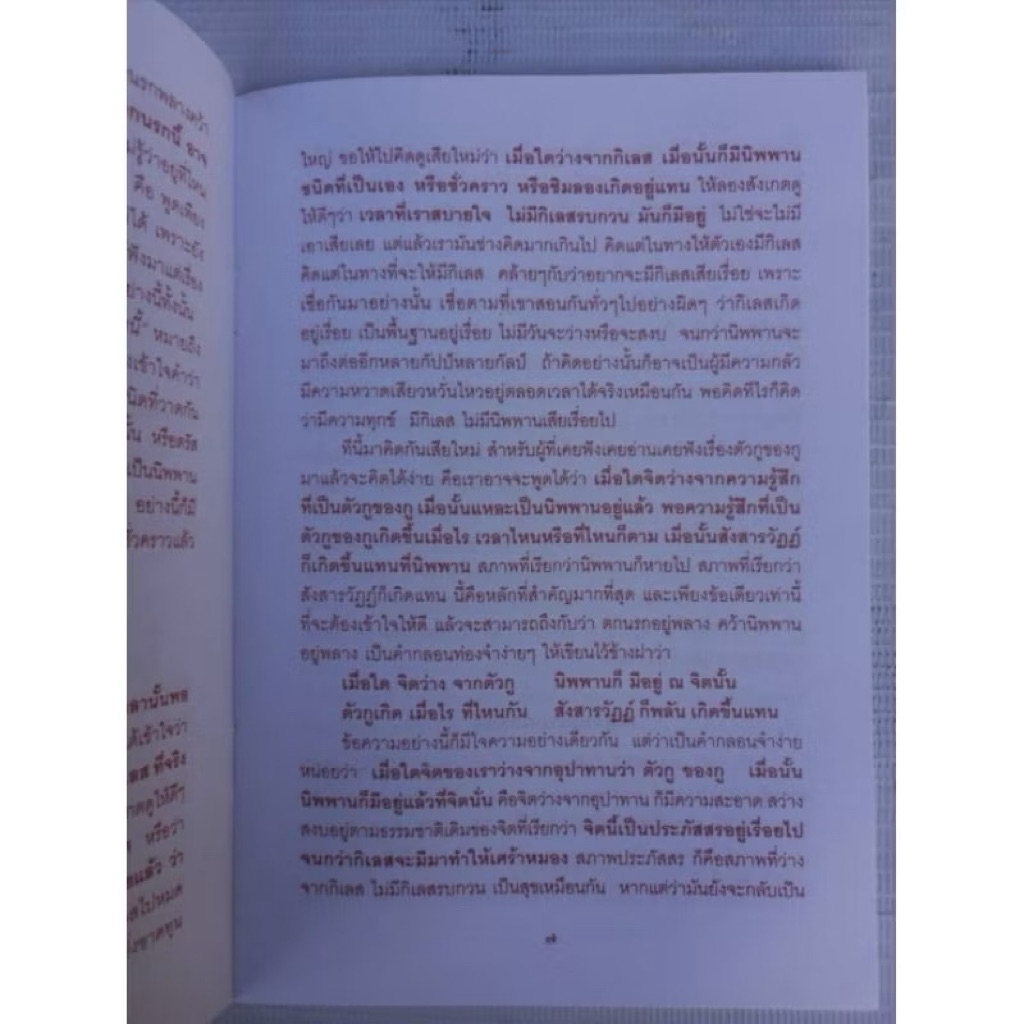 นรกพลางคว้า
กนรกนี้ อาจ
รู้ว่าอยู่ที่ไหน
คือ พูดเพียง
ได้ เพราะยัง
ฟังมาแต่เรื่อง
อย่างนี้ทั้งนั้น
นี้" หมายถึง
เข้าใจคำว่า
นิดที่วาดกัน
นั้น หรือตรัส
เป็นนิพพาน
อย่างนี้ก็มี
ชั่วคราวแล้ว
ลานั้นพอ
เข้าใจว่า
ลส ที่จริง
าดดูให้ดีๆ
หรือว่า
แล้ว ว่า
สไปหมด
ขาดทุน
ใหญ่ ขอให้ไปคิดดูเสียใหม่ว่า เมื่อใดว่างจากกิเลส เมื่อนั้นก็มีนิพพาน
ชนิดที่เป็นเอง หรือชั่วคราว หรือชิมลองเกิดอยู่แทน ให้ลองสังเกตดู
ให้ดีๆว่า เวลาที่เราสบายใจ ไม่มีกิเลสรบกวน มันก็มีอยู่ ไม่ใช่จะไม่มี
เอาเสียเลย แต่แล้วเรามันช่างคิดมากเกินไป คิดแต่ในทางให้ตัวเองมีกิเลส
คิดแต่ในทางที่จะให้มีกิเลส คล้ายๆกับว่าอยากจะมีกิเลสเสียเรื่อย เพราะ
เชื่อกันมาอย่างนั้น เชื่อตามที่เขาสอนกันทั่วๆไปอย่างผิดๆ ว่ากิเลสเกิด
อยู่เรื่อย เป็นพื้นฐานอยู่เรื่อย ไม่มีวันจะว่างหรือจะสงบ จนกว่านิพพานจะ
มาถึงต่ออีกหลายกัปป์หลายกัลป์ ถ้าคิดอย่างนั้นก็อาจเป็นผู้มีความกลัว
มีความหวาดเสียวหวั่นไหวอยู่ตลอดเวลาได้จริงเหมือนกัน พอคิดทีไรก็คิด
ว่ามีความทุกข์ มีกิเลส ไม่มีนิพพานเสียเรื่อยไป
ทีนี้มาคิดกันเสียใหม่ สำหรับผู้ที่เคยฟังเคยอ่านเคยฟังเรื่องตัวกูของกู
มาแล้วจะคิดได้ง่าย คือเราอาจจะพูดได้ว่า เมื่อใดจิตว่างจากความรู้สึก
ที่เป็นตัวกูของกู เมื่อนั้นแหละเป็นนิพพานอยู่แล้ว พอความรู้สึกที่เป็น
ตัวกูของกูเกิดขึ้นเมื่อไร เวลาไหนหรือที่ไหนก็ตาม เมื่อนั้นสังสารวัฏฏ์
ก็เกิดขึ้นแทนที่นิพพาน สภาพที่เรียกว่านิพพานก็หายไป สภาพที่เรียกว่า
สังสารวัฏฏ์ก็เกิดแทน นี้คือหลักที่สำคัญมากที่สุด และเพียงข้อเดียวเท่านี้
ที่จะต้องเข้าใจให้ดี แล้วจะสามารถถึงกับว่า ตกนรกอยู่พลาง คว้านิพพาน
อยู่พลาง เป็นคำกลอนท่องจำง่ายๆ ให้เขียนไว้ข้างฝาว่า
เมื่อใด จิตว่าง จากตัวกู นิพพานก็ มีอยู่ ณ จิตนั้น
ตัวกูเกิด เมื่อไร ที่ไหนกัน สังสารวัฏฏ์ ก็พลัน เกิดขึ้นแทน
ข้อความอย่างนี้ก็มีใจความอย่างเดียวกัน แต่ว่าเป็นคำกลอนจำง่าย
หน่อยว่า เมื่อใดจิตของเราว่างจากอุปาทานว่า ตัวกู ของกู เมื่อนั้น
นิพพานก็มีอยู่แล้วที่จิตนั่น คือจิตว่างจากอุปาทาน ก็มีความสะอาด สว่าง
สงบอยู่ตามธรรมชาติเดิมของจิตที่เรียกว่า จิตนี้เป็นประภัสสรอยู่เรื่อยไป
จนกว่ากิเลสจะมีมาทำให้เศร้าหมอง สภาพประภัสสร ก็คือสภาพที่ว่าง
จากกิเลส ไม่มีกิเลสรบกวน เป็นสุขเหมือนกัน หากแต่ว่ามันยังจะกลับเป็น
๗